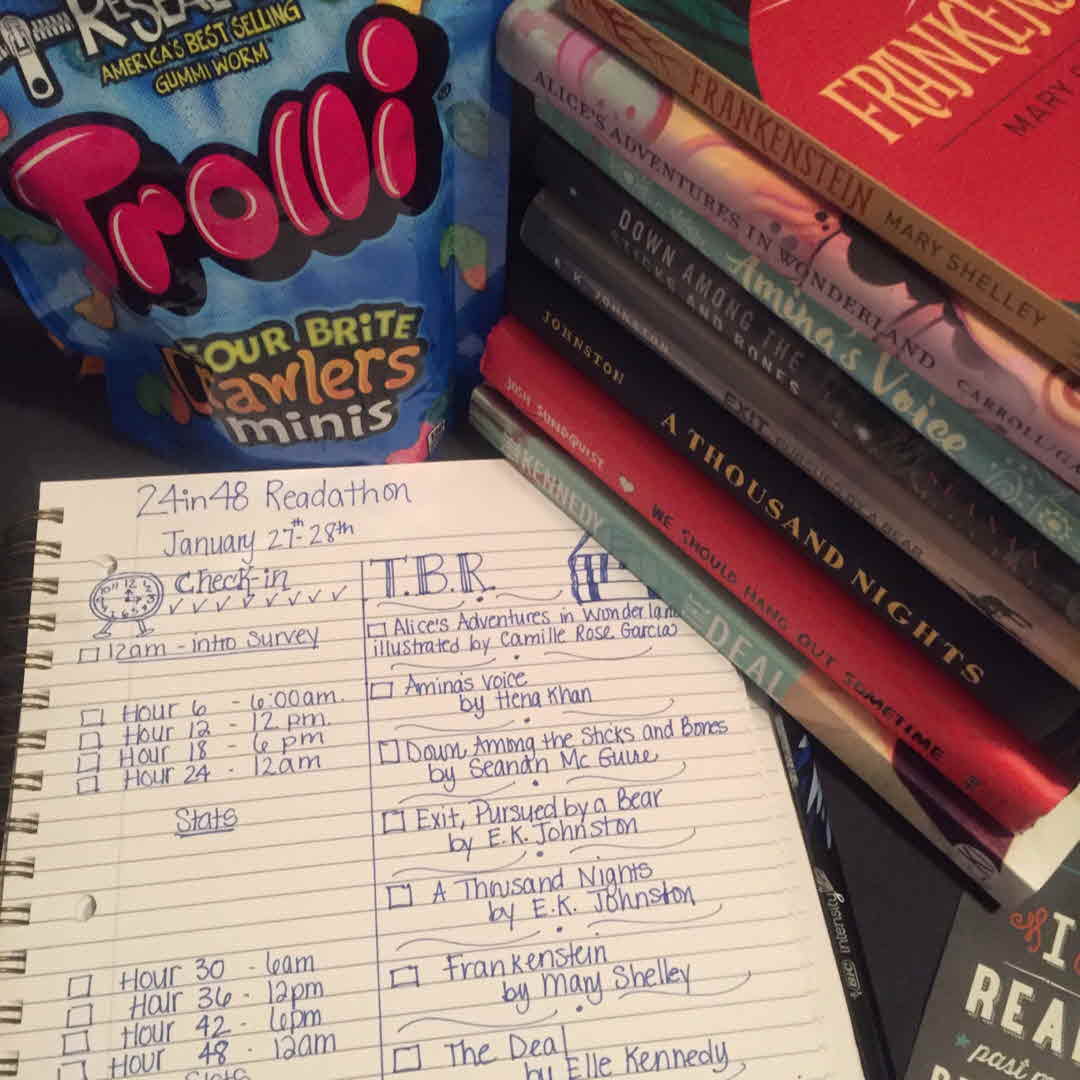 RESEAL
AMERICA'S BEST SELLING
GUMMI WORM
Trolli
SOUR BRITE
Crawlers
minis
FRANKENS
MARY
FRANKENSTEIN MARY SHELLEY
ALICE'S ADVENTURES IN WONDERLAND CARROLL/GA
Amina's Voice
DOWN AMONG THE
STICKS AND BONES
E. K. JOHNSTON EXIT, PURSUED BY A BEAR
JOHNSTON A THOUSAND NIGHTS
JOSH SUNDQUIST WE SHOULD HANG OUT SOMETIME
KENNEDY THE DEAL
24in48 Readathon
January 27th-28th
Check-in
12am - Intro Survey
Hour 6 - 6:00am.
Hour 12 - 12 pm.
Hour 18 - 6 pm
Hour 24 - 12am
Stats
Hour 30 - 6am
Hour 36 - 12pm
Hour 42 - 6pm
Hour 48 - 12am
Stats
T.B.R.
Alice's Adventures in Wonderlan
illustrated by Camille Rose Garcia
Amina's Voice
by Hena Khan
Down Among the Sticks and Bones
by Seanan Mc Guire
Exit, Pursued by a Bear
by E.K. Johnston
A Thousand Nights
by E.K. Johnston
Frankenstein
by Mary Shelley
The Deal
by Elle Kennedy
BIC intensity
I
REA
past